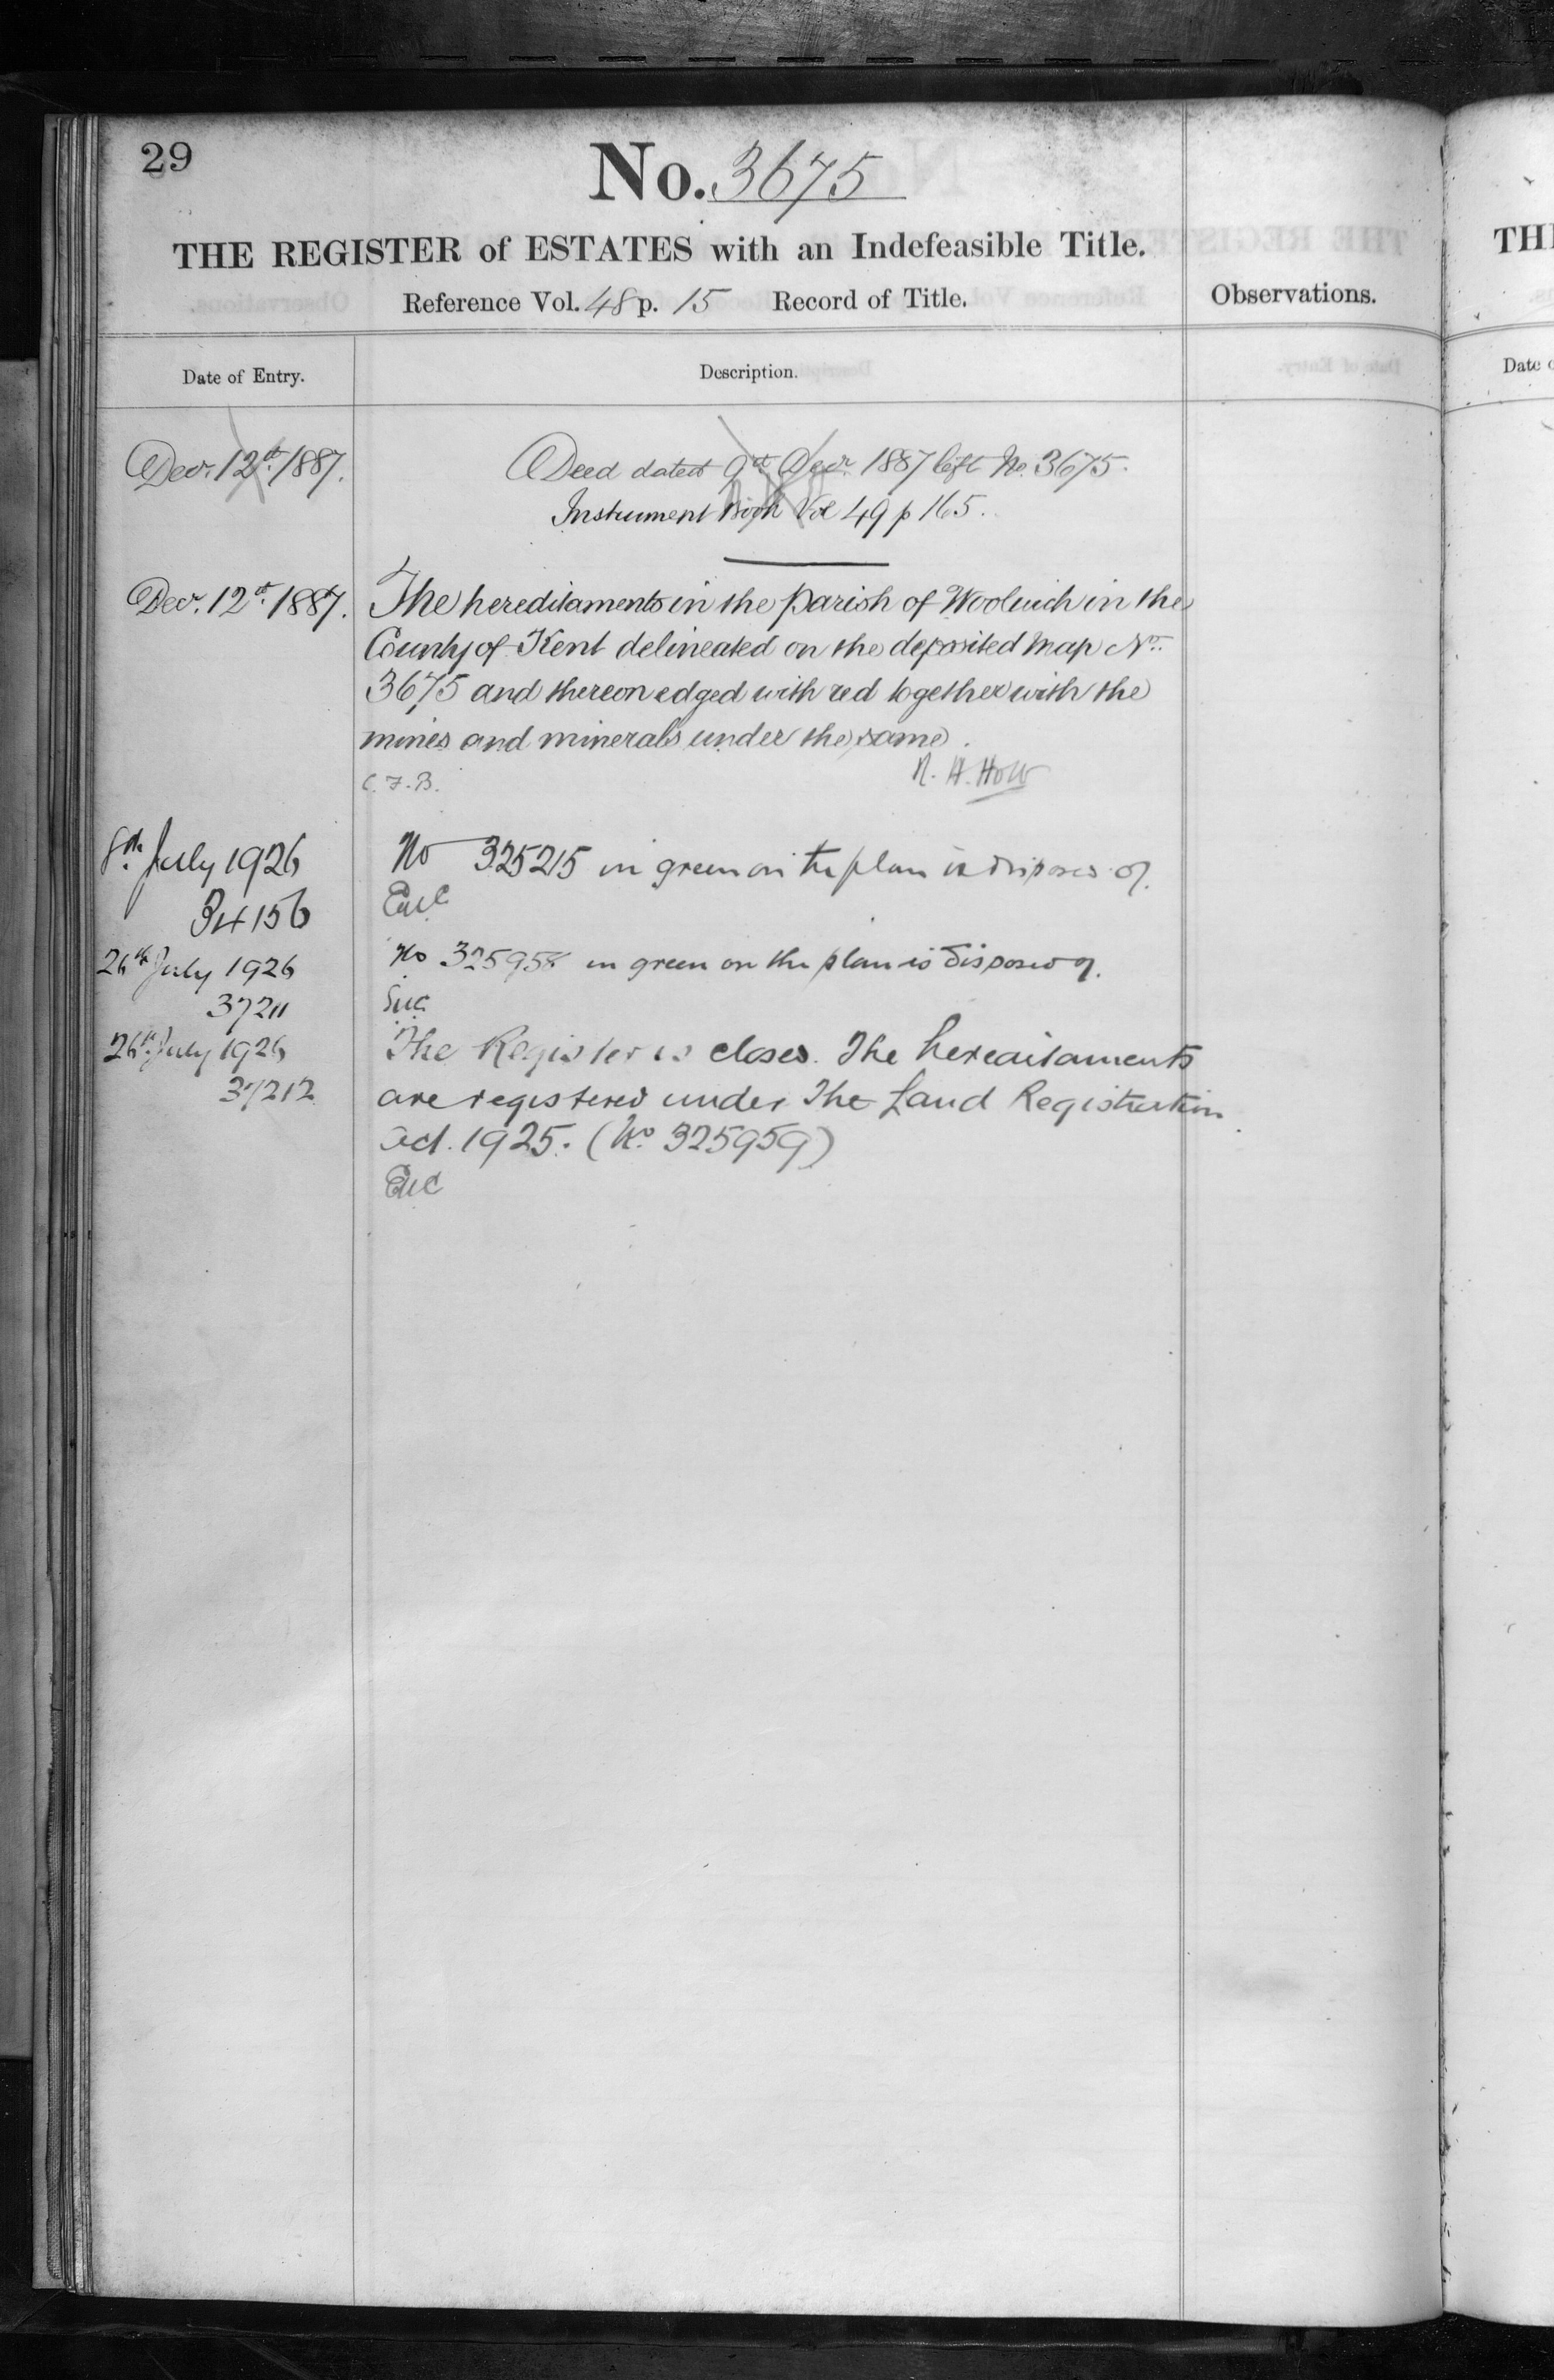 29
No. 3675
THE REGISTER of ESTATES with an Indefeasible Title.
Reference Vol. 48 p. 15 Record of Title.
Observations.
Date of Entry.
Description.
Decr. 12th 1887.
Deed dated 9th Decr 1887 left No. 3675.
Instrument Book Vol 49 p 165.
Decr. 12th 1887.
The hereditaments in the parish of Woolwich in the
County of Kent delineated on the deposited Map No.
3675 and thereon edged with red together with the
mines and minerals under the same.
C.F.B.
R. H. Holt
8th July 1926
No 325215 in green on the plan is disposed of.
34156
26th July 1926
No 325958 in green on the plan is disposed of.
37211
26th July 1926
The Register is closed. The hereditaments
37212
are registered under The Land Registration
Act. 1925. (No 325959)
TH
Date o